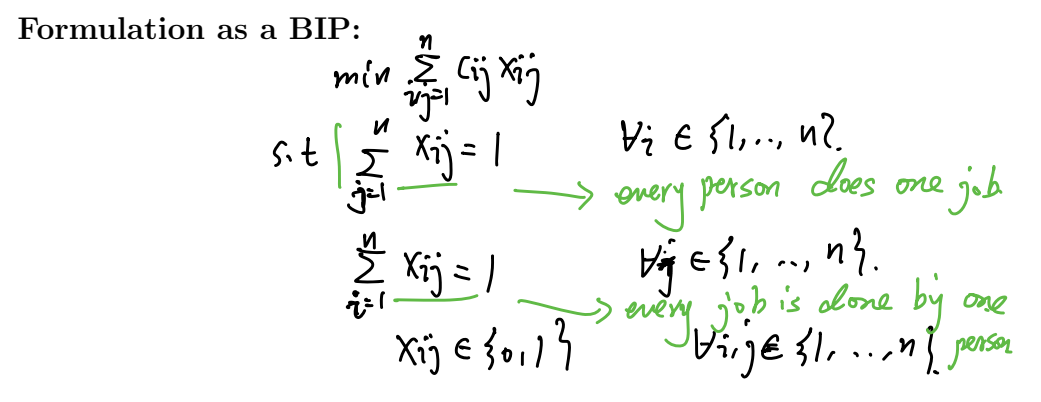 Formulation as a BIP:
min ∑_{i,j=1}^{n} C_{ij} X_{ij}
s.t ∑_{j=1}^{n} X_{ij} = 1 ∀i ∈ {1,.., n}.
→ every person does one job
∑_{i=1}^{n} X_{ij} = 1 ∀j ∈ {1, .., n}.
→ every job is done by one person
X_{ij} ∈ {0,1} ∀i,j ∈ {1, ..., n}.